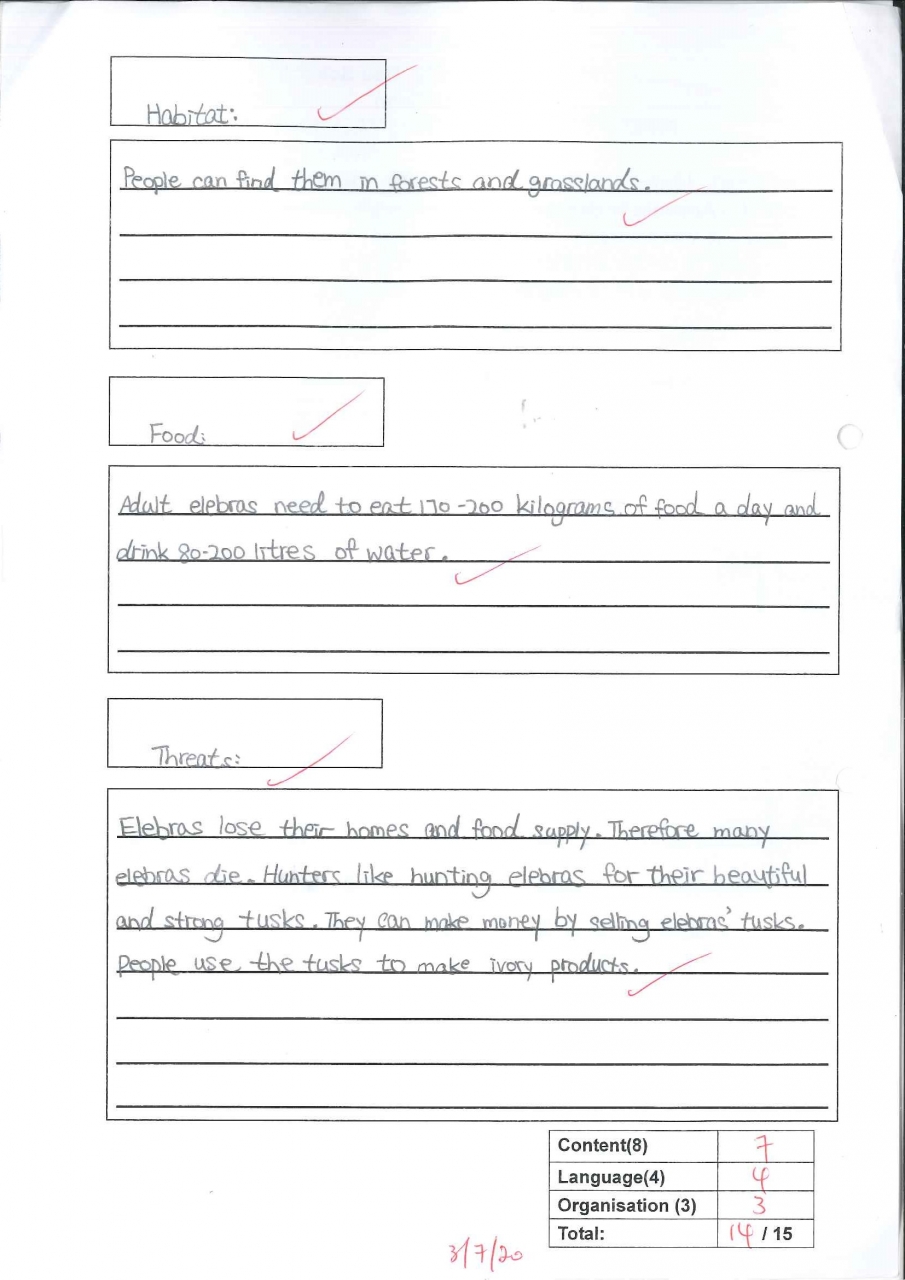 Habitat:
People can find them in forests and grasslands.
Food:
Adult elebras need to eat 170-200 kilograms of food a day and
drink 80-200 litres of water.
Threats:
Elebras lose their homes and food supply. Therefore many
elebras die. Hunters like hunting elebras for their beautiful
and strong tusks. They can make money by selling elebras' tusks.
People use the tusks to make ivory products.
Content(8) 7
Language(4) 4
Organisation (3) 3
Total: 14 / 15
3/7/20